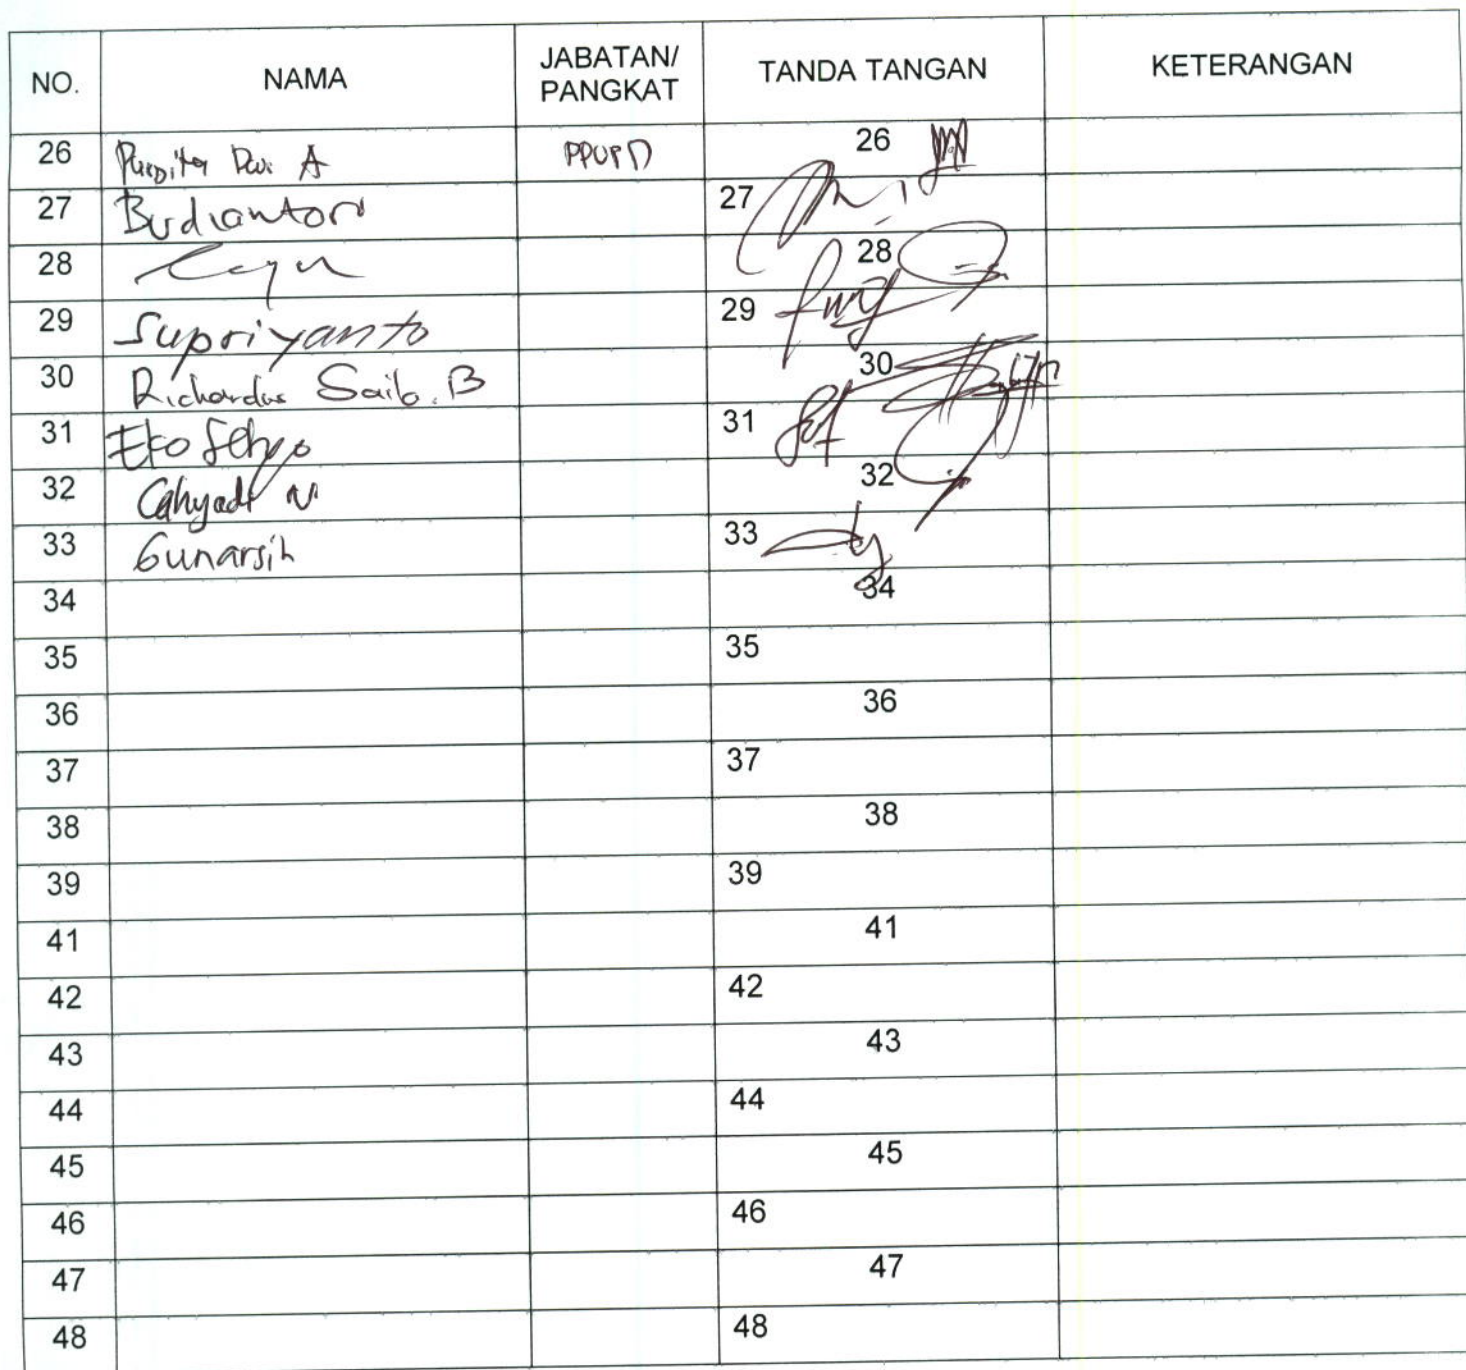 NO. NAMA JABATAN/ PANGKAT TANDA TANGAN KETERANGAN
26 A PPUPD 26
27 Budiantoro 27
28 28
29 Supriyanto 29
30 Richardus Saib. B 30
31 Eko Setyo 31
32 Cahyadi N 32
33 Gunarsih 33
34 34
35 35
36 36
37 37
38 38
39 39
41 41
42 42
43 43
44 44
45 45
46 46
47 47
48 48